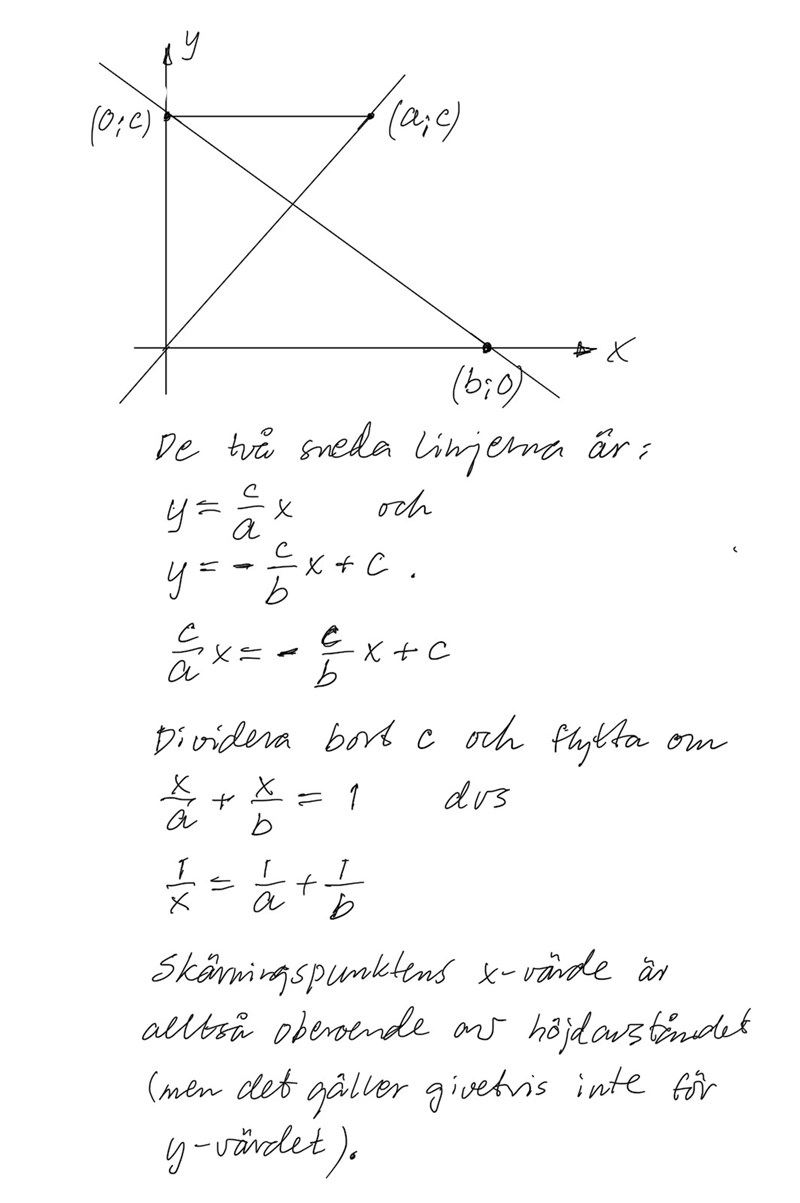 y
(0;c)
(a;c)
x
(b;0)
De två sneda linjerna är:
y = c/a x och
y = - c/b x + c .
c/a x = - c/b x + c
Dividera bort c och flytta om
x/a + x/b = 1 dvs
1/x = 1/a + 1/b
Skärningspunktens x-värde är
alltså oberoende av höjdavståndet
(men det gäller givetvis inte för
y-värdet).